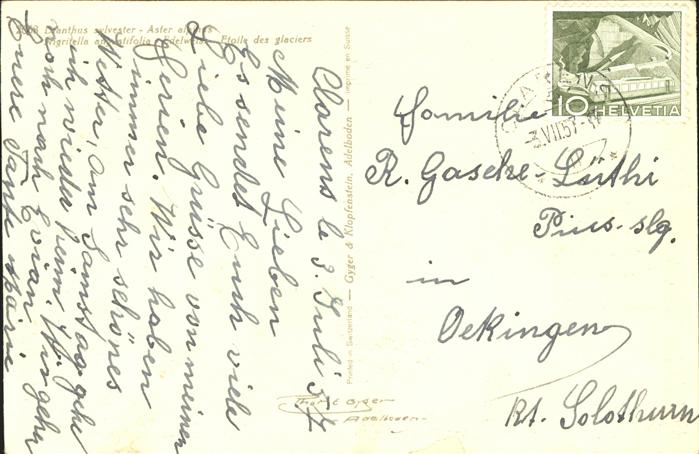 Dianthus sylvester - Aster alpinus
Nigritella angustifolia - Edelweiss - Etoile des glaciers
Clarens le 3. Juli 57
Meine Lieben
Es sendet Euch viele
Liebe Grüsse von meinen
Ferien. Wir haben
immer sehr schönes
Wetter, am Samstag gehe
ich wieder heim. Wir gehen
noch nach Evian
Eure Tante Marie
Printed in Switzerland — Gyger & Klopfenstein, Adelboden — Imprimé en Suisse
Gyger
Adelboden
10 HELVETIA
CLARENS
-3.VII.57.
Familie
R. Gasche-Lüthi
Pius. slg.
in
Oekingen
Kt. Solothurn